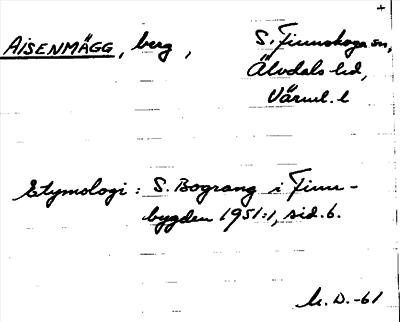 AISENMÄGG, berg, S. Finnskoga sn,
Älvdals hd,
Värml. l
Etymologi: S. Bograng i Finn-
bygden 1951:1, sid. 6.
M.D.-61